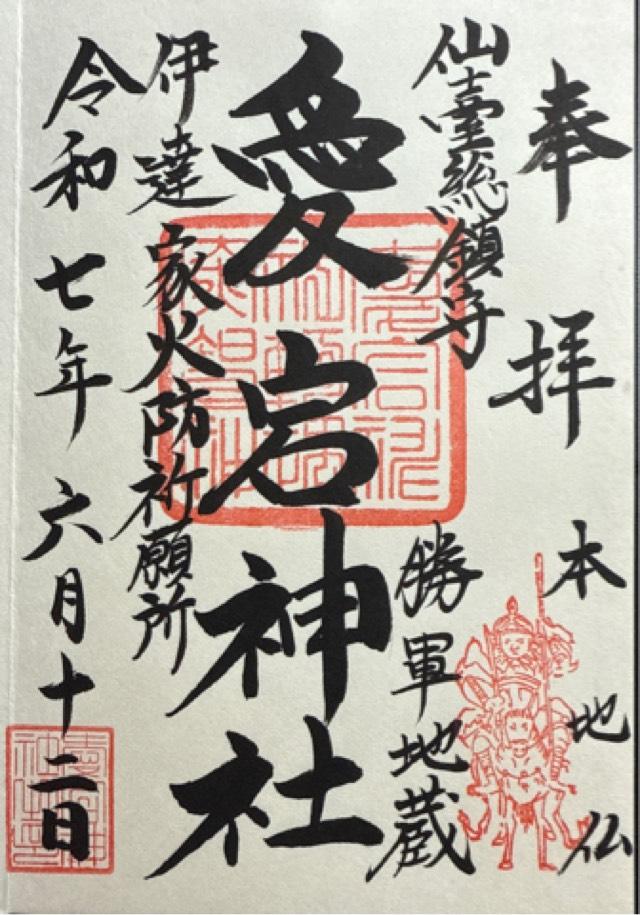 奉拝
本地仏
仙臺総鎮守
勝軍地蔵
愛宕神社
伊達家火防祈願所
令和七年六月十二日